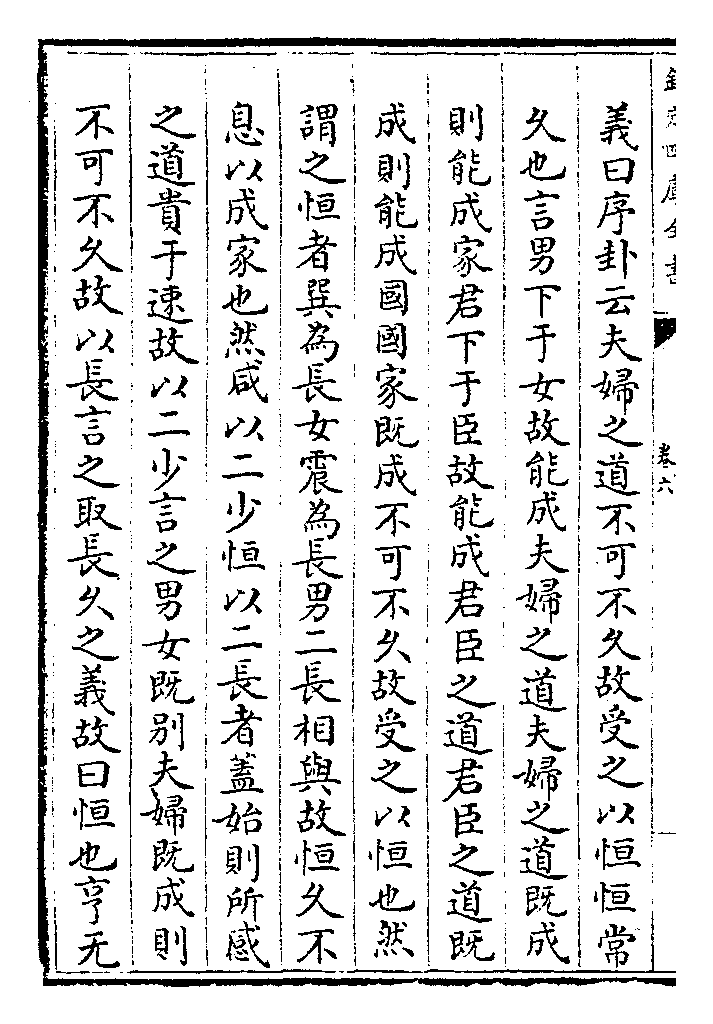 欽定四庫全書
卷六
義曰序卦云夫婦之道不可不久故受之以恒恒常
久也言男下于女故能成夫婦之道夫婦之道既成
則能成家君下于臣故能成君臣之道君臣之道既
成則能成國國家既成不可不久故受之以恒也然
謂之恒者巽為長女震為長男二長相與故恒久不
息以成家也然咸以二少恒以二長者蓋始則所感
之道貴于速故以二少言之男女既別夫婦既成則
不可不久故以長言之取長久之義故曰恒也亨无